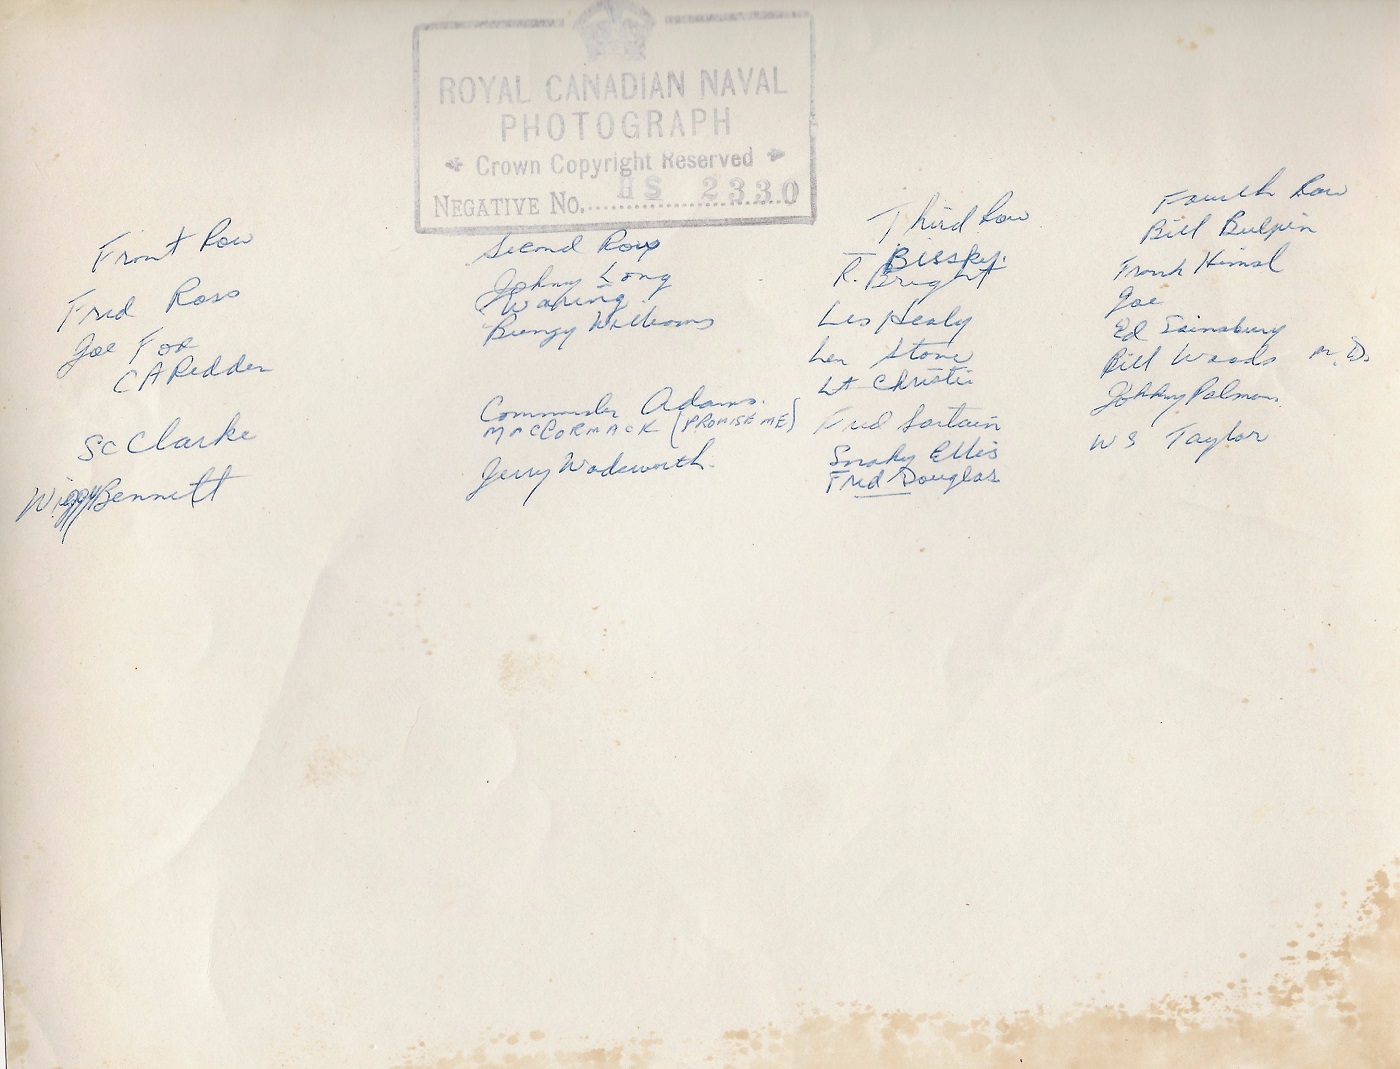 ROYAL CANADIAN NAVAL
PHOTOGRAPH
Crown Copyright Reserved
NEGATIVE No. HS 2330
Front Row
Fred Ross
Joe Fox
CA Redden
SC Clarke
Wiggy Bennett
Second Row
Johny Long
Waring
Bungy Williams
Commander Adams.
MACCORMACK (PROMISE ME)
Jerry Wadsworth.
Third Row
Bissky.
R. Bright
Les Healy
Len Stone
Lt Christie
Fred Sartain
Snaky Ellis
Fred Douglas
Fourth Row
Bill Bulpin
Frank Himsl
Joe
Ed Sainsbury
Bill Woods M.D.
Johnny Palmer
W S Taylor